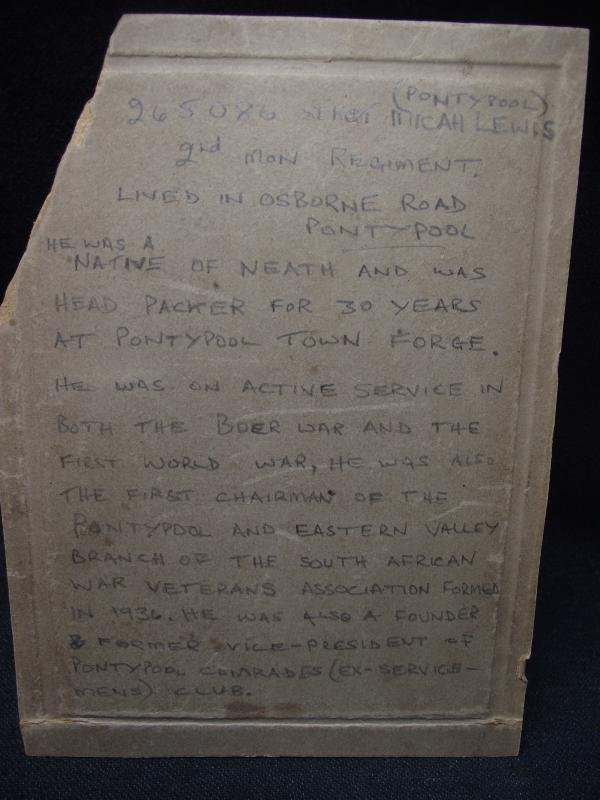 (PONTYPOOL)
265086 SERGT MICAH LEWIS
2nd MON REGIMENT.
LIVED IN OSBORNE ROAD
PONTYPOOL
HE WAS A
NATIVE OF NEATH AND WAS
HEAD PACKER FOR 30 YEARS
AT PONTYPOOL TOWN FORGE.
HE WAS ON ACTIVE SERVICE IN
BOTH THE BOER WAR AND THE
FIRST WORLD WAR, HE WAS ALSO
THE FIRST CHAIRMAN OF THE
PONTYPOOL AND EASTERN VALLEY
BRANCH OF THE SOUTH AFRICAN
WAR VETERANS ASSOCIATION FORMED
IN 1936. HE WAS ALSO A FOUNDER
& FORMER VICE-PRESIDENT OF
PONTYPOOL COMRADES (EX-SERVICE-
MENS) CLUB.